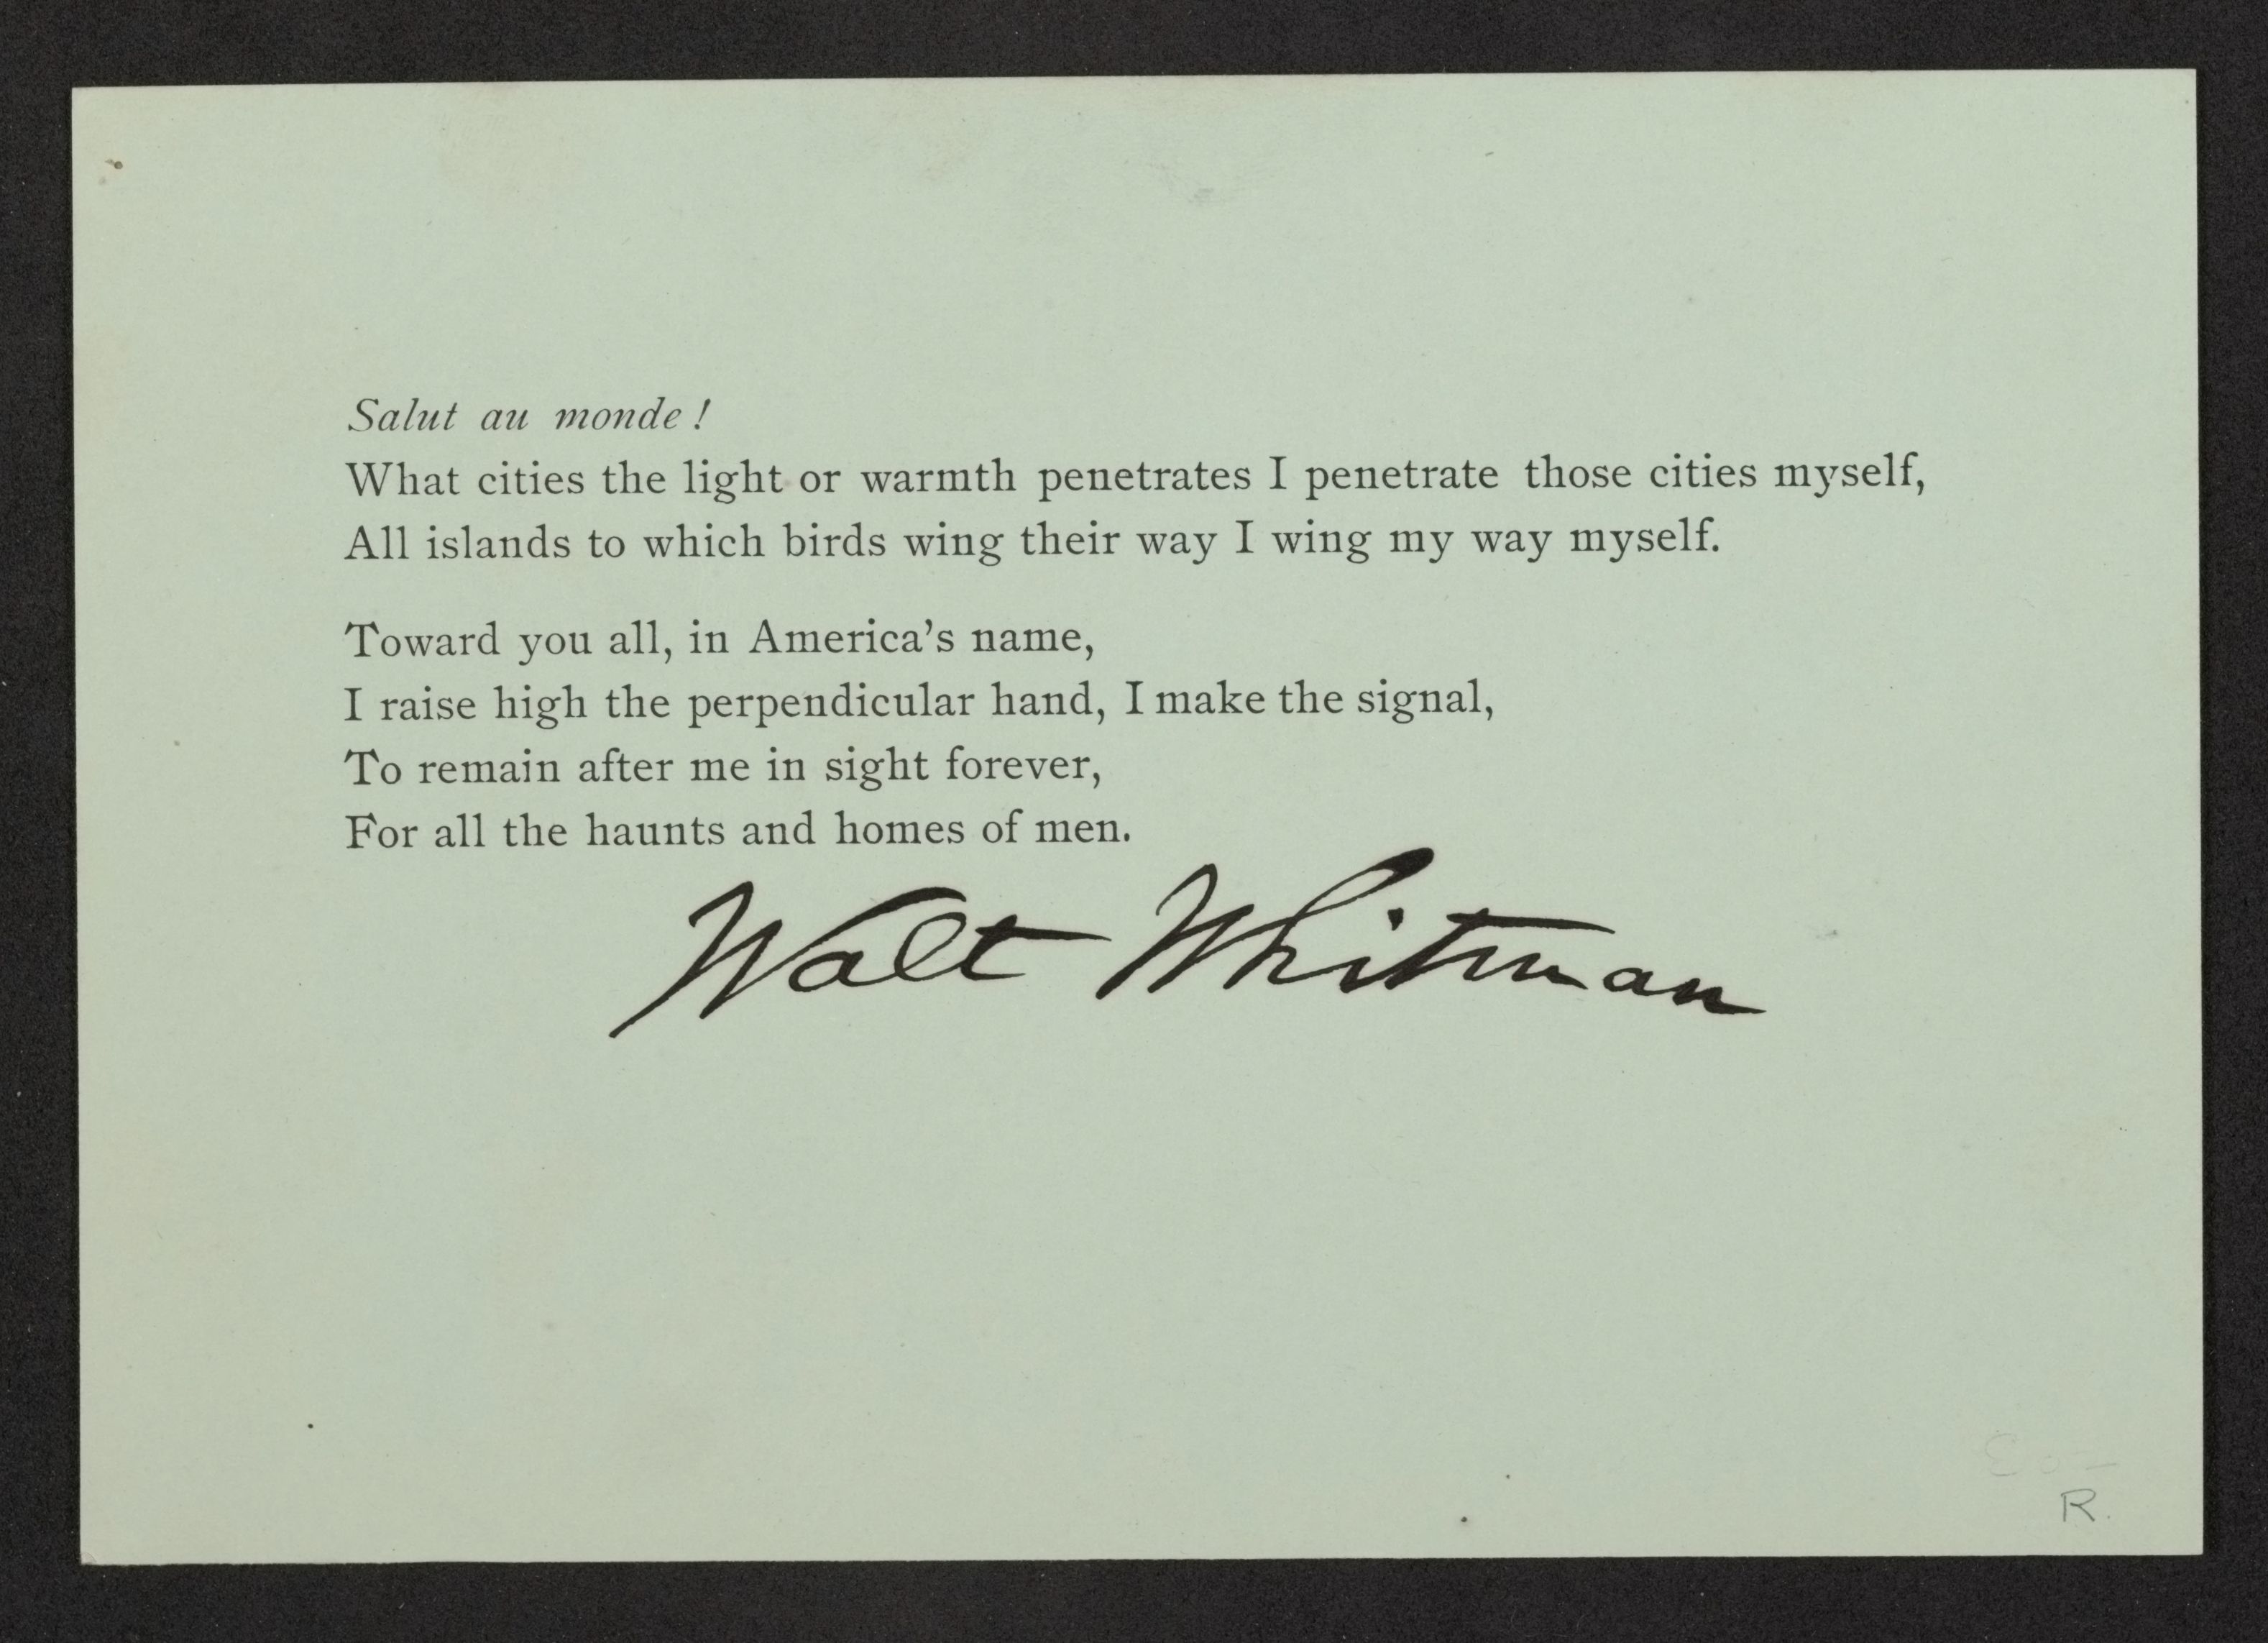 Salut au monde !
What cities the light or warmth penetrates I penetrate those cities myself,
All islands to which birds wing their way I wing my way myself.
Toward you all, in America’s name,
I raise high the perpendicular hand, I make the signal,
To remain after me in sight forever,
For all the haunts and homes of men.
Walt Whitman
R.